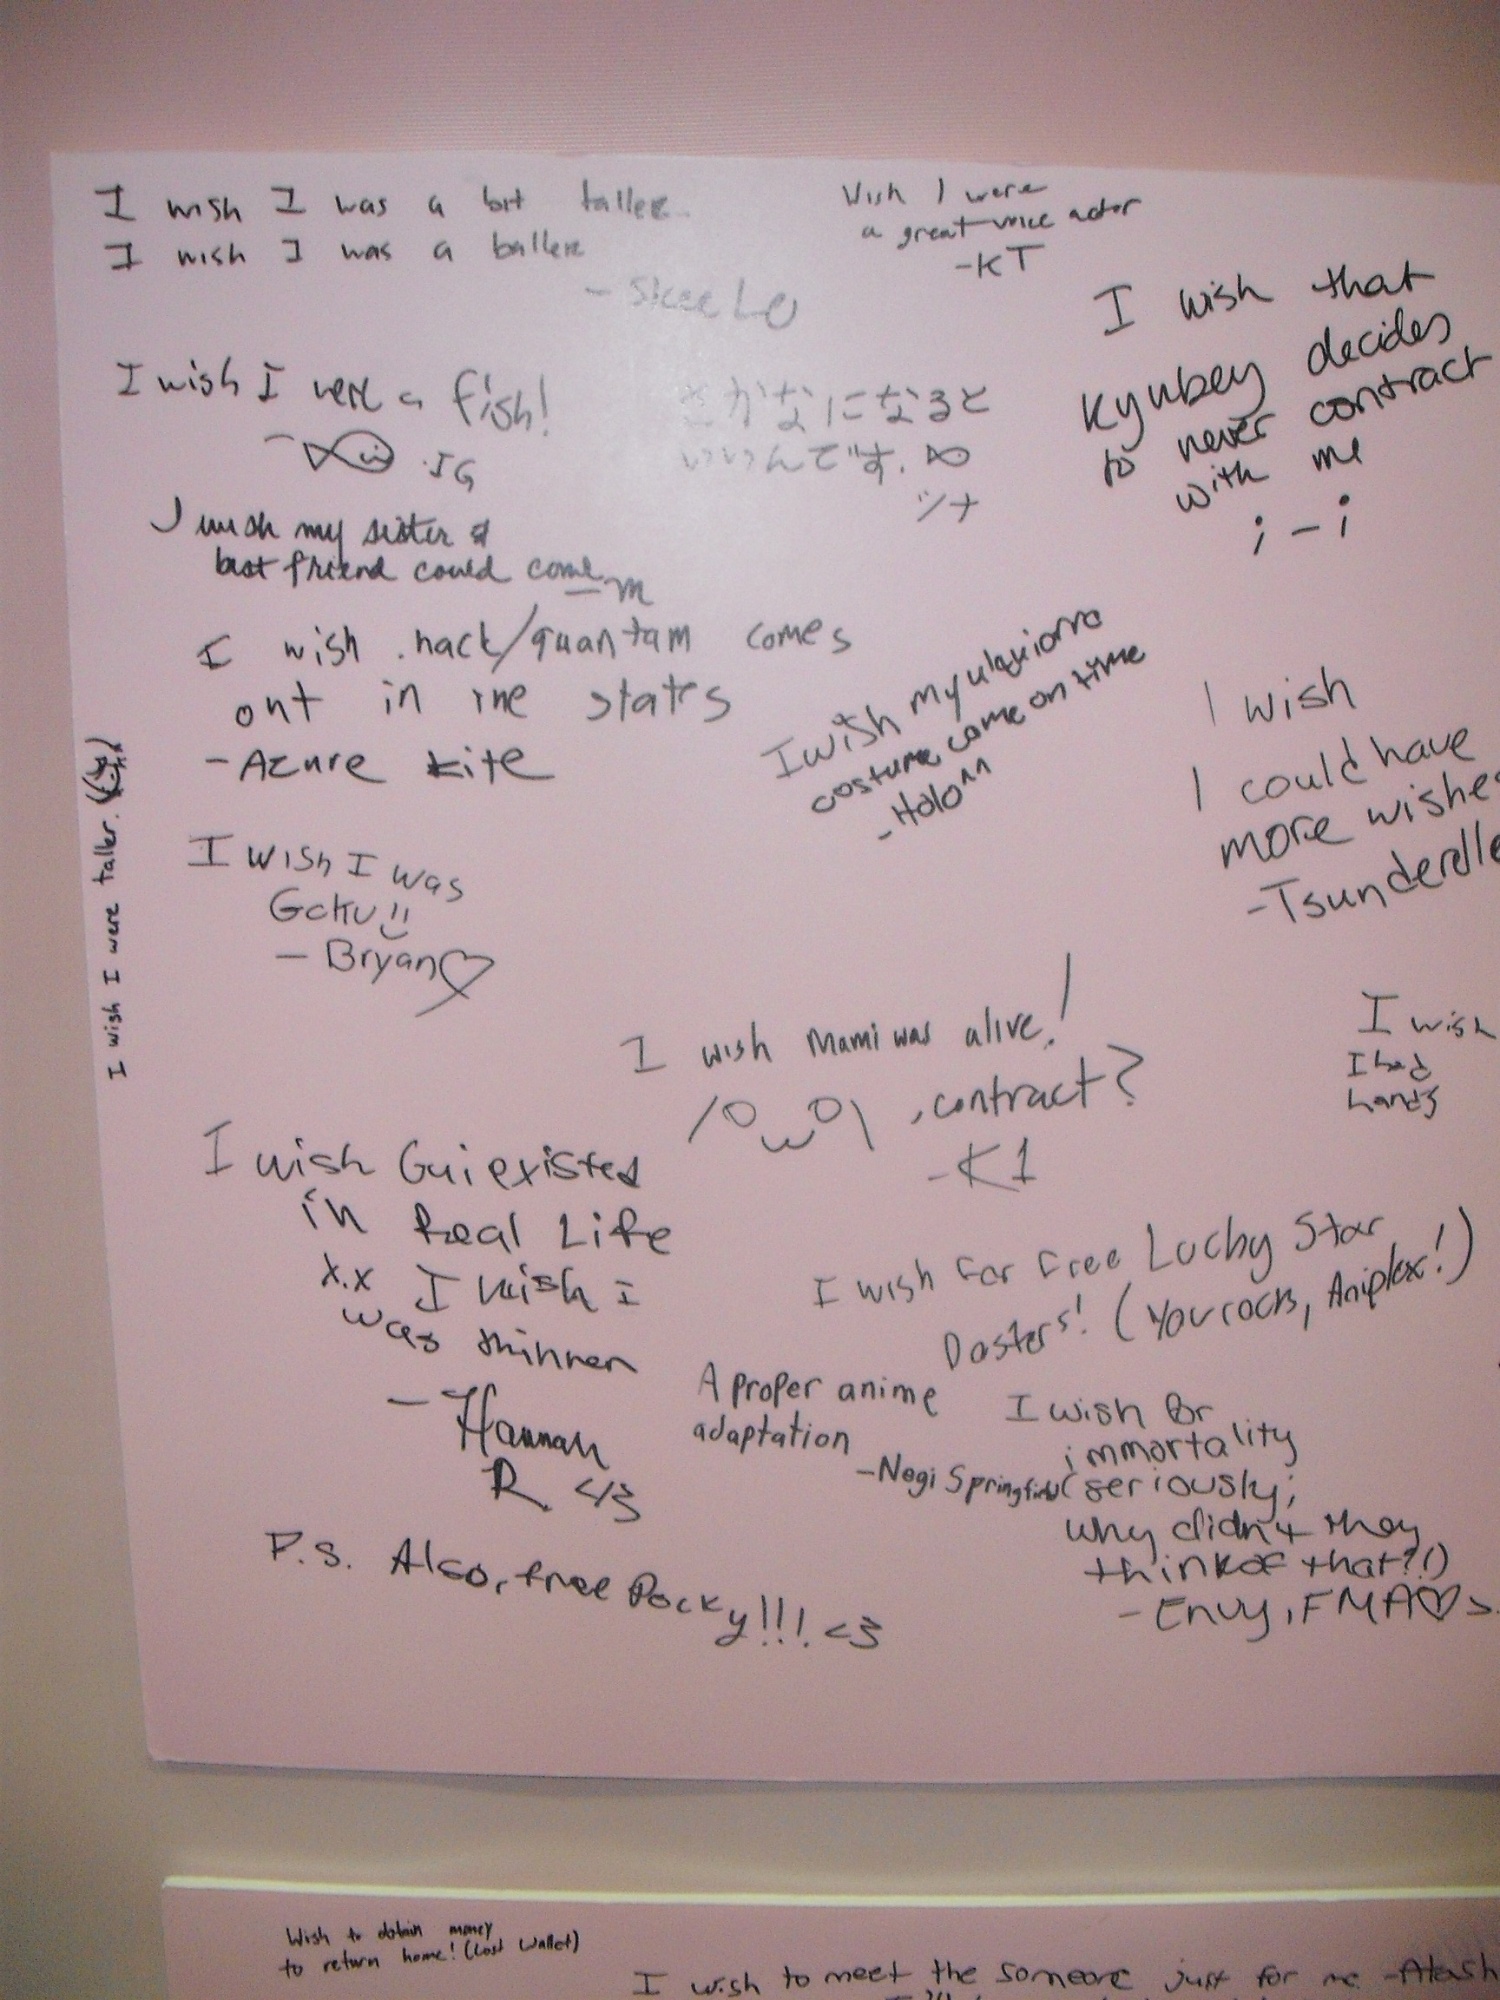 I wish I was a bit taller
I wish I was a baller
- Skee Lo
Wish I were
a great voice actor
-KT
I wish that
Kyubey decides
to never contract
with me
; - ;
I wish I were a fish!
- JG
さかなになると
いいんです.
ツナ
I wish my sister &
best friend could come
- m
I wish .hack/quantam comes
out in the states
- Azure Kite
I wish my
costume come on time
- Holo^^
I wish
I could have
more wishes
-Tsunderelle
I wish I were taller.
I WISH I was
Goku!!
- Bryan♡
I wish Mami was alive!
/OwO\ , contract?
- K1
I wish
I had
hands
I wish Gui existed
in Real Life
x.x I wish I
was thinner
- Hannah
R </3
P.S. Also, free Pocky!!! <3
I wish for free Lucky Star
Posters! (You rock, Aniplex!)
A proper anime
adaptation
-Negi Springfield
I wish for
immortality
(seriously;
why didn't they
think of that?!)
- Envy, FMA♡
Wish to obtain money
to return home! (Lost Wallet)
I wish to meet the someone just for me -Atash